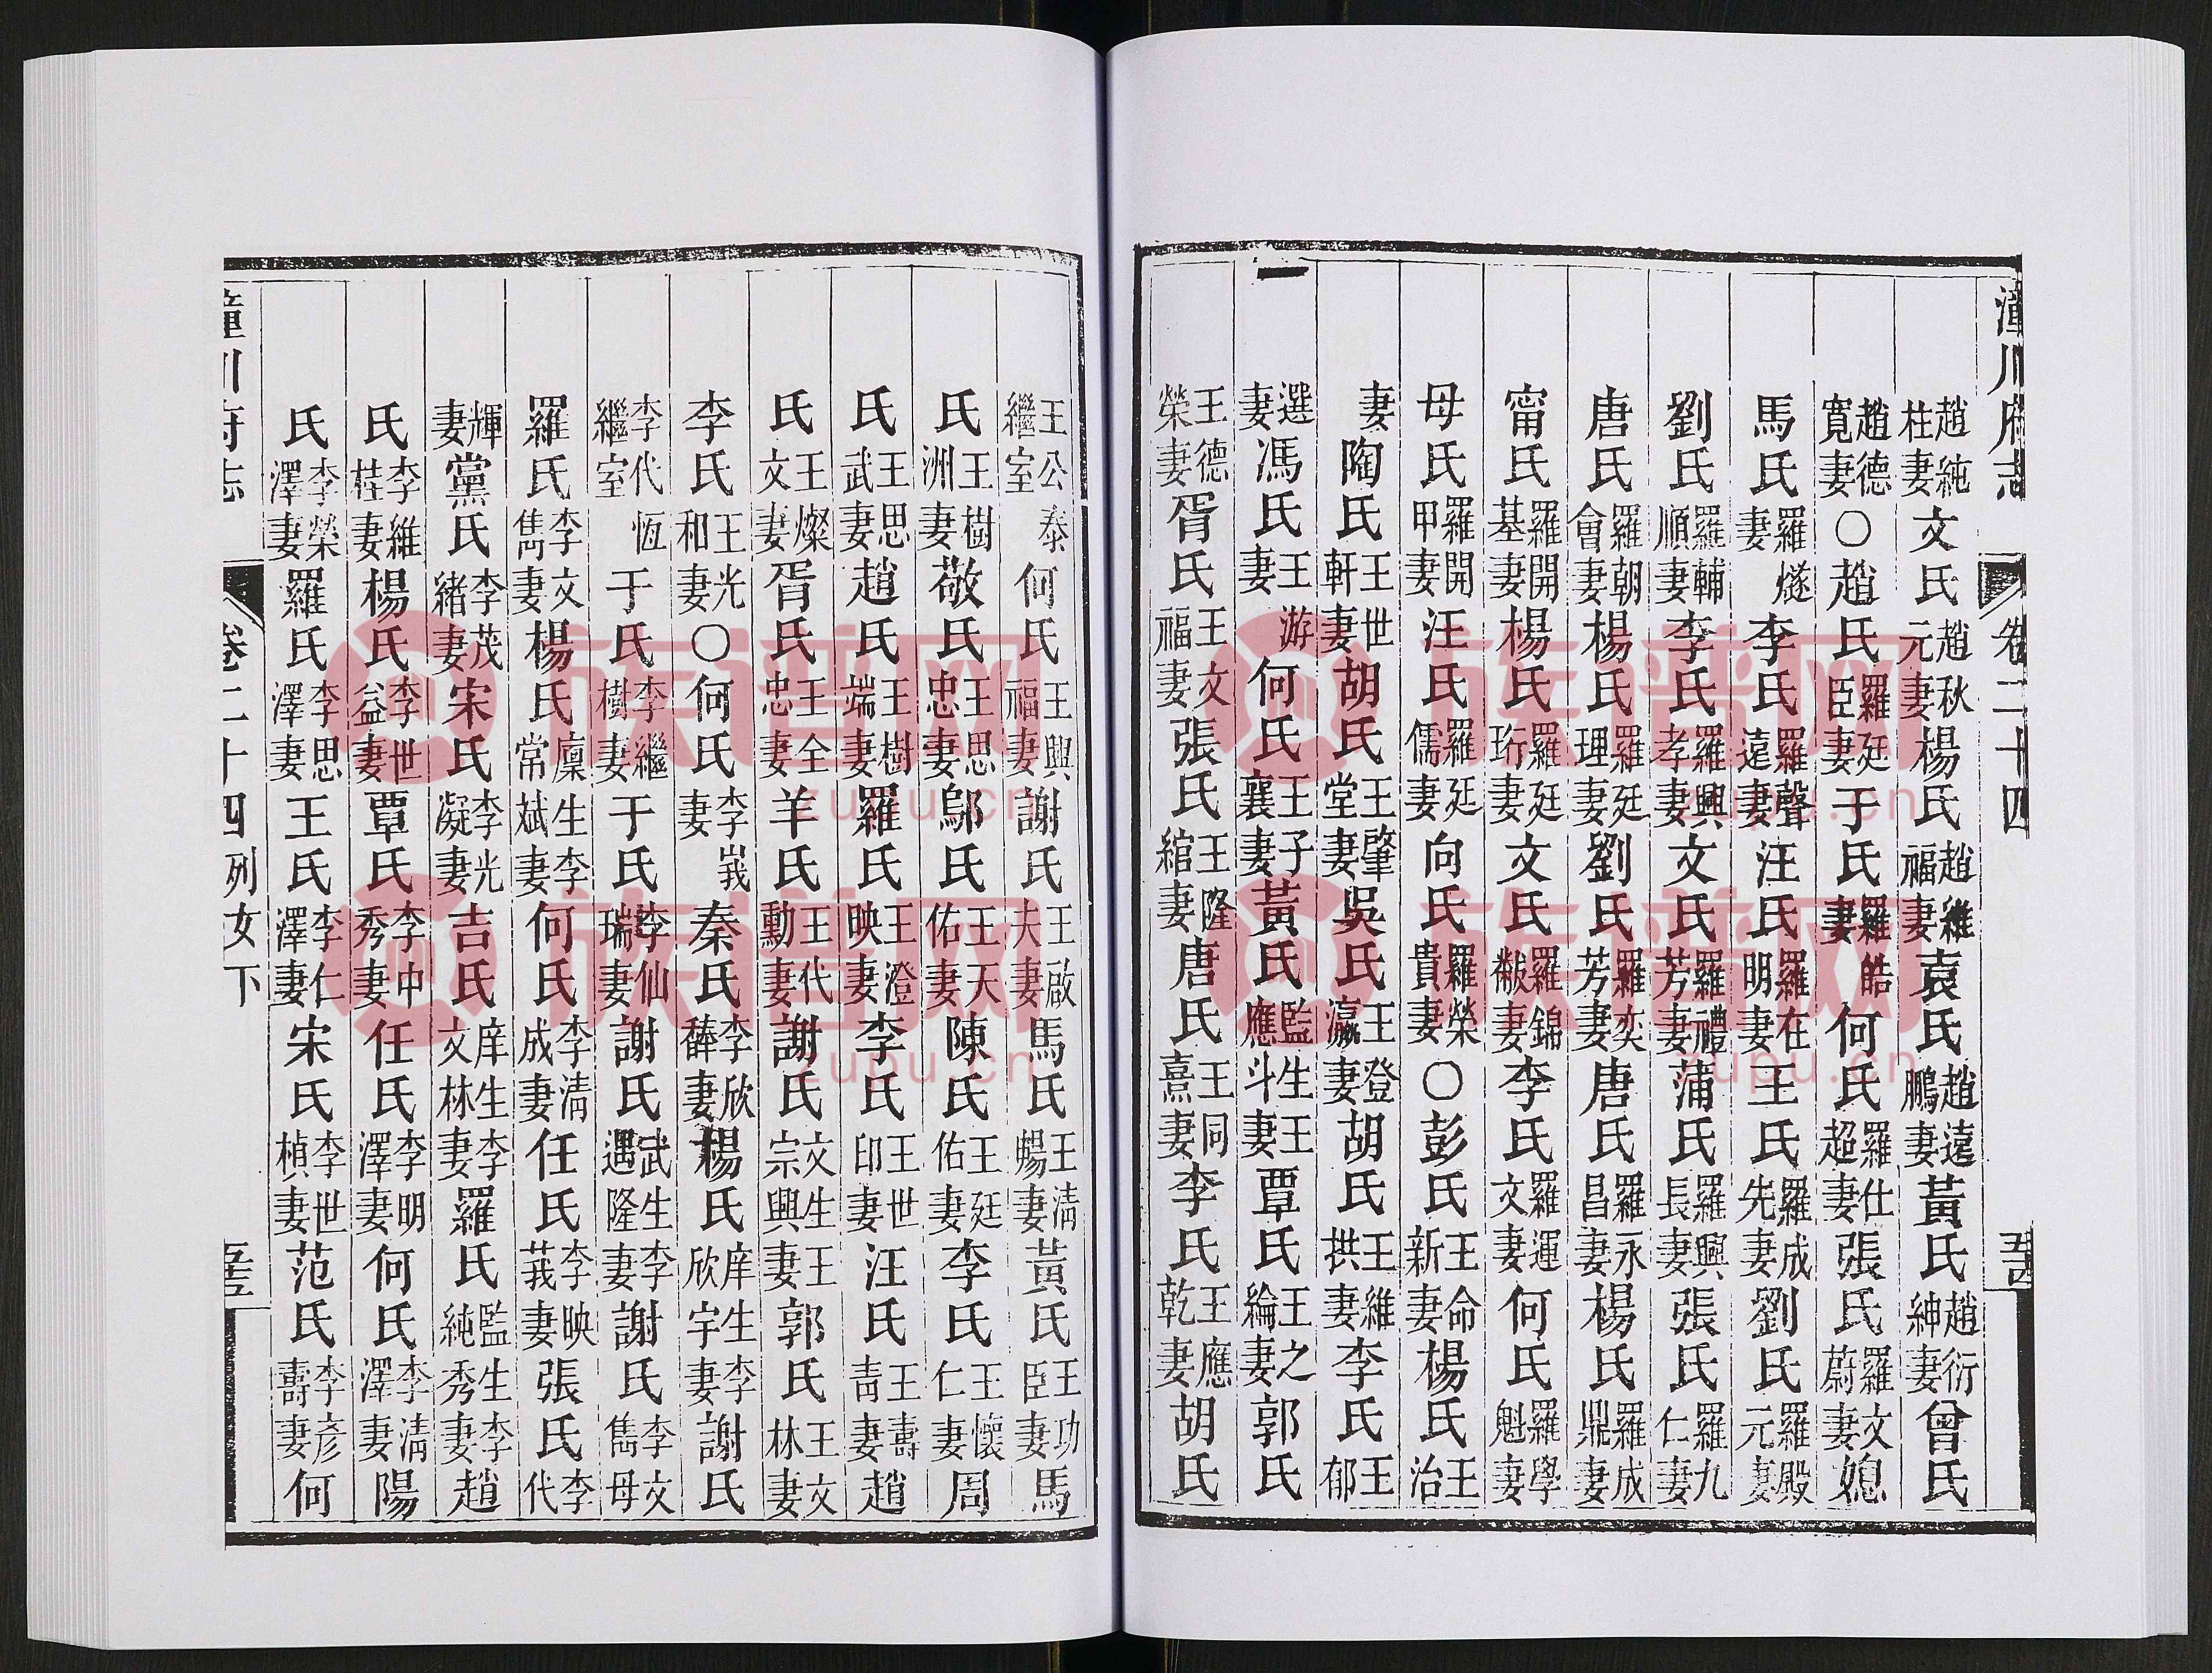 潼川府志 卷二十四 五十四
趙純桂妻文氏趙秋元妻楊氏趙維福妻袁氏趙遠鵬妻黃氏趙衍紳妻曾氏
趙德寬妻〇趙氏羅廷臣妻于氏羅皓妻何氏羅仕超妻張氏羅文蔚妻媳
馬氏羅燧妻李氏羅聲遠妻汪氏羅在明妻王氏羅成先妻劉氏羅殿元妻
劉氏羅輔順妻李氏羅興孝妻文氏羅禮芳妻蒲氏羅興長妻張氏羅九仁妻
唐氏羅朝會妻楊氏羅廷理妻劉氏羅奕芳妻唐氏羅永昌妻楊氏羅成鼎妻
甯氏羅開基妻楊氏羅廷珩妻文氏羅錦黻妻李氏羅運文妻何氏羅學魁妻
母氏羅開甲妻汪氏羅延儒妻向氏羅榮貴妻〇彭氏王命新妻楊氏王治
妻陶氏王世軒妻胡氏王肇堂妻吳氏王登瀛妻胡氏王維拱妻李氏王郁
選妻馮氏王游妻何氏王子襄妻黃氏監生王應斗妻覃氏王之綸妻郭氏
王德榮妻胥氏王文福妻張氏王隆綰妻唐氏王同熹妻李氏王應乾妻胡氏
王公泰繼室何氏王興福妻謝氏王啟夫妻馬氏王清暢妻黃氏王功臣妻馬
氏王樹洲妻敬氏王思忠妻鄔氏王天佑妻陳氏王廷佑妻李氏王懷仁妻周
氏王思武妻趙氏王樹端妻羅氏王澄映妻李氏王世印妻汪氏王壽青妻趙
氏王燦文妻胥氏王全忠妻羊氏王代勳妻謝氏文生王宗興妻郭氏王文林妻
李氏王光和妻〇何氏李峩妻秦氏李欣薛妻楊氏庠生李欣宇妻謝氏
李代恆繼室于氏李繼樹妻于氏李仙瑞妻謝氏武生李遇隆妻謝氏李文雋母
羅氏李文雋妻楊氏廩生李常斌妻何氏李清成妻任氏李映莪妻張氏李代
輝妻黨氏李茂緒妻宋氏李光凝妻吉氏庠生李文林妻羅氏監生李純秀妻趙
氏李維桂妻楊氏李世益妻覃氏李中秀妻任氏李明澤妻何氏李清澤妻陽
氏李榮澤妻羅氏李思澤妻王氏李仁澤妻宋氏李世楨妻范氏李彥壽妻何
潼川府志 卷二十四列女下 五十五
族谱网
zupu.cn
族谱网
zupu.cn
族谱网
zupu.cn
族谱网
zupu.cn